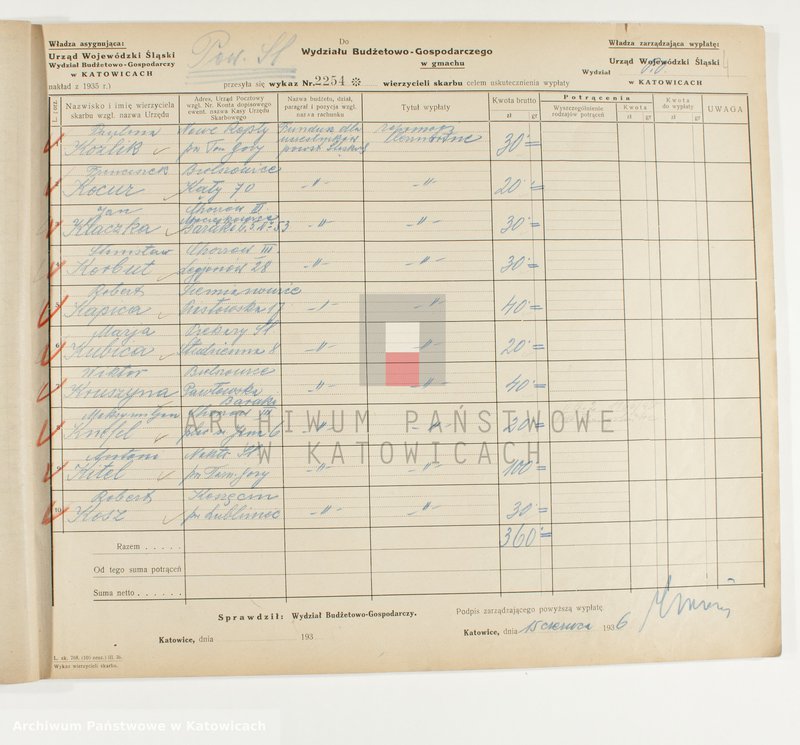 Władza asygnująca:
Urząd Wojewódzki Śląski
Wydział Budżetowo-Gospodarczy
w KATOWICACH
nakład z 1935 r.)
Pow. Śl
Do
Wydziału Budżetowo-Gospodarczego
w gmachu
Władza zarządzająca wypłatę:
Urząd Wojewódzki Śląski
Wydział
w KATOWICACH
przesyła się wykaz Nr. 2254 wierzycieli skarbu celem uskutecznienia wypłaty
L. porz.
Nazwisko i imię wierzyciela skarbu wzgl. nazwa Urzędu
Adres, Urząd Pocztowy wzgl. Nr. Konta dopisowego ewent. nazwa Kasy Urzędu Skarbowego
Nazwa budżetu, dział, paragraf i pozycja wzgl. nazwa rachunku
Tytuł wypłaty
Kwota brutto
zł gr
Potrącenia
Wyszczególnienie rodzajów potrąceń
Kwota
zł gr
Kwota do wypłaty
zł gr
UWAGA
Paulina Nowe Repty Fundusz dla
Kozlik pow. Tarn. Góry 30=
Franciszek Bielszowice
Kocur Kąty 70 -"- -"- 20=
Jan Chorzów III
Klaczka Baraki 53 -"- -"- 30=
Stanisław Chorzów III
Korbut Legjonów 28 -"- -"- 30=
Robert Siemianowice
Kapica Piastowska 17 -"- -"- 40=
Marja Piekary Śl
Kubica Studzienna 8 -"- -"- 20=
Wiktor Bielszowice
Kruszyna Pawłowska -"- -"- 40=
Baraki
Chorzów
Knefel 6 -"- -"- 20=
Antoni Nakło Śl
Kitel pow. Tarn. Góry -"- -"- 100=
10 Robert
Kosz pow. Lubliniec -"- -"- 30=
360=
Razem . . . . .
Od tego suma potrąceń
Suma netto . . . . . .
Sprawdził: Wydział Budżetowo-Gospodarczy.
Podpis zarządzającego powyższą wypłatę
Katowice, dnia 193
Katowice, dnia 15 czerwca 1936
L. sk. 768. (10) renz.) III. 36.
Wykaz wierzycieli skarbu.
ARCHIWUM PAŃSTWOWE
W KATOWICACH
Archiwum Państwowe w Katowicach